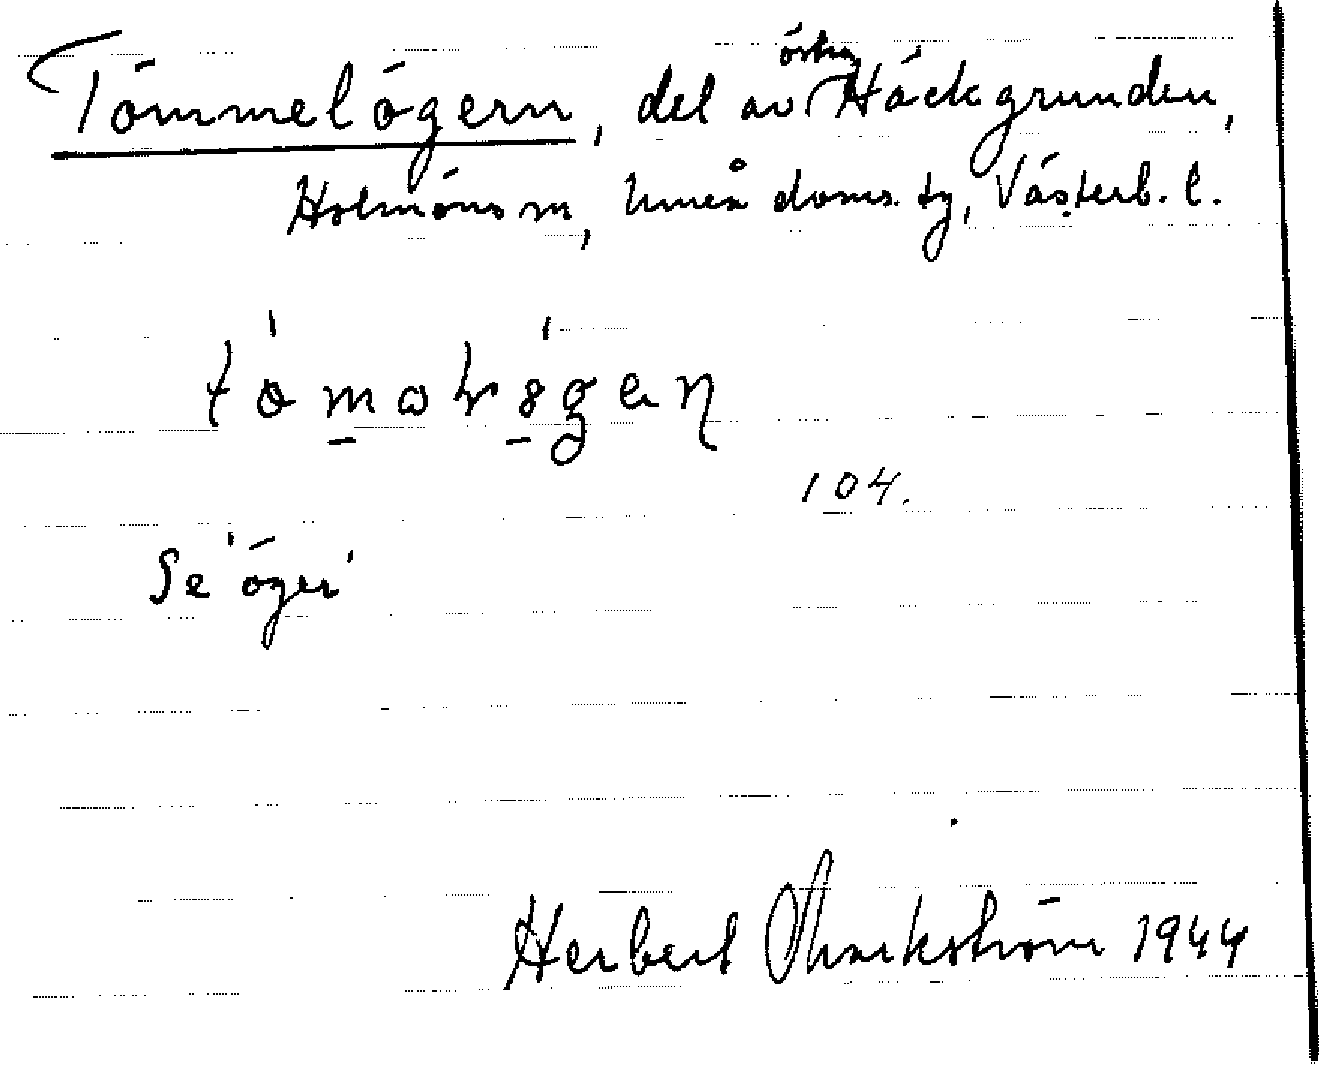 Tömmelögern, del av östra Häckgrunden,
Holmöns sn, Umeå doms. tg, Västerb. l.
104.
Se 'öger'
Herbert Markström 1944